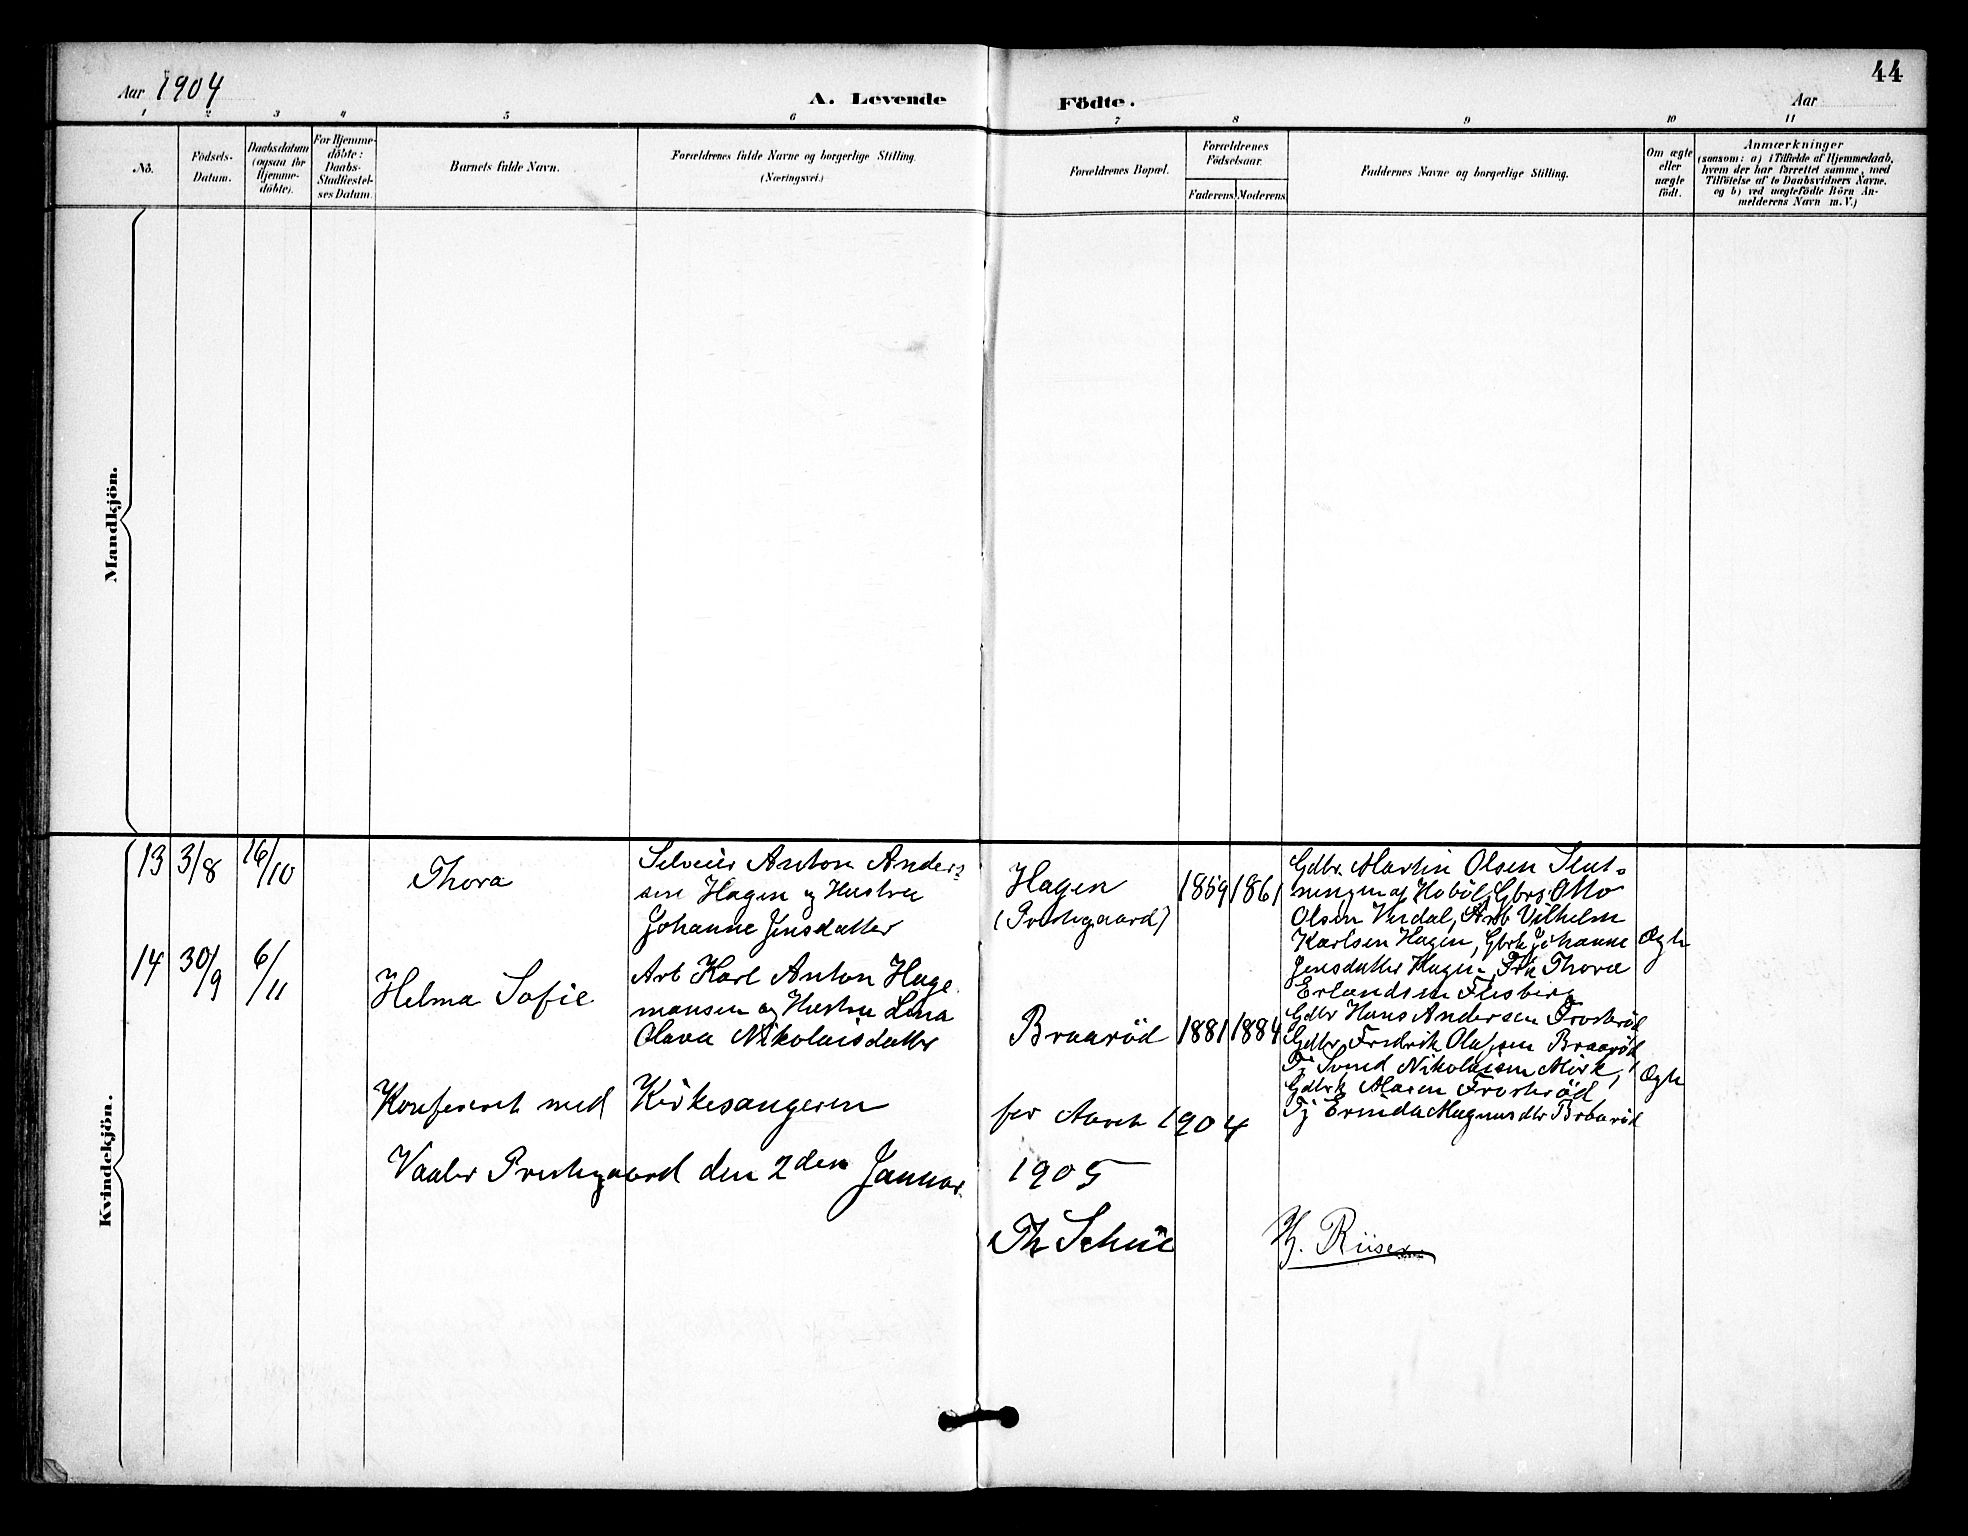 44
Aar 1904
A. Levende Födte.
Aar
1 2 3 4 5 6 7 8 9 10 11
No.
Födsels-
Datum.
Daabsdatum
(ogsaa for
Hjemme-
döbte).
For Hjemme-
döbte:
Daabs-
Stadfæstel-
ses Datum.
Barnets fulde Navn.
Forældrenes fulde Navne og borgerlige Stilling.
(Næringsvei.)
Forældrenes Bopæl.
Forældrenes
Födselsaar.
Faderens. Moderens.
Faddernes Navne og borgerlige Stilling.
Om ægte
eller
uægte
födt.
Anmærkninger
(saasom: a) i Tilfælde af Hjemmedaab,
hvem der har forrettet samme, med
Tilföielse af to Daabsvidners Navne,
og b) ved uægtefödte Börn An-
melderens Navn m. V.)
Mandkjön.
Kvindekjön.
13
3/8
16/10
Thora
Selveier Anton Ander-
sen Hagen og Hustru
Johanne Jensdatter
Hagen
(Prestegaard)
1859
1861
Gdbr. Martin Olsen
Hobøl, Gbrs Otto
Olsen Arb Vilhelm
Karlsen Hagen, Gbrk Johanne
Jensdatter Hagen, Frk Thora
Erlandsen
Ægte
14
30/9
6/11
Helma Sofie
Arb Karl Anton Hage
mansen og Hustru Lina
Olava Nikolaisdatter
Braarød
1881
1884
Gdbr Hans Andersen Froskerød
Gdbr. Fredrik Olafsen Braarød
Tj Svend Nikolaisen Mørk,
Gdbrk Maren Froskerød
Tj Magnusdtr Braarød
Ægte
Konfereret med Kirkesangeren for Aaret 1904
Vaaler Prestegaard den 2den Januar 1905
Th Schüe
H. Riiser